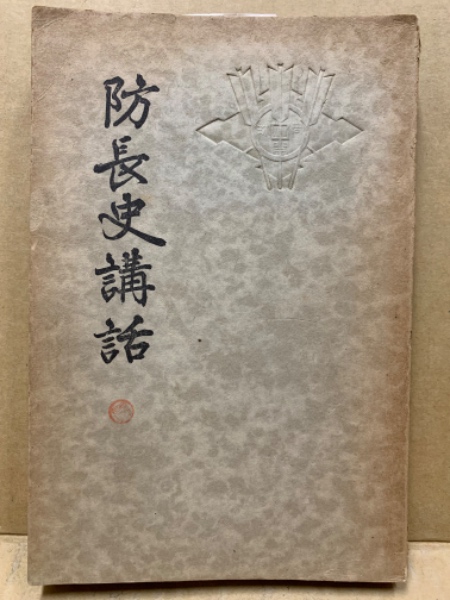 防長史講話